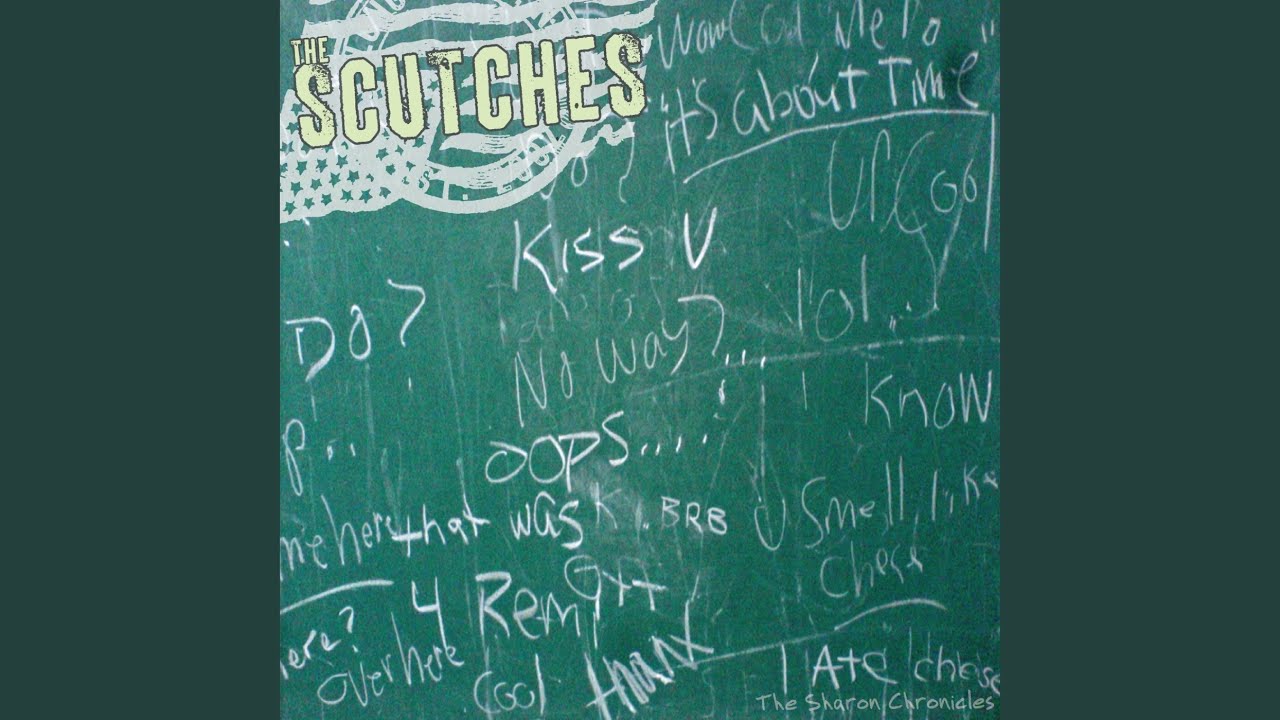 THE
SCUTCHES
it's about Time"
Ur Cool
Kiss U
Do?
lol..
No way?...
I Know
OOPS.....
that was K. BRB
U Smell like
chese
4 Rem
ere?
over here
Cool
I Ate chese
The Sharon Chronicles